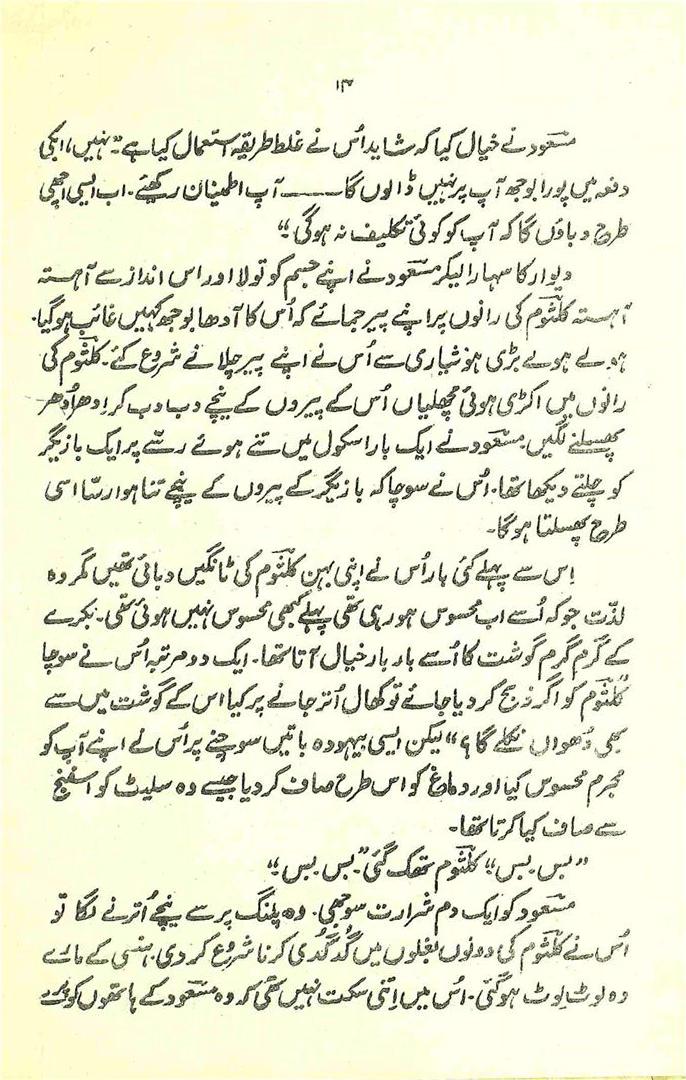 ۱۴
مسعود نے خیال کیا کہ شاید اُس نے غلط طریقہ استعمال کیا ہے۔ "نہیں، ابکی
دفعہ میں پورا بوجھ آپ پر نہیں ڈالوں گا —— آپ اطمینان رکھئے۔ اب ایسی اچھی
طرح دباؤں گا کہ آپ کو کوئی تکلیف نہ ہوگی۔"
دیوار کا سہارا لیکر مسعود نے اپنے جسم کو تولا اور اس انداز سے آہستہ
آہستہ کلثوم کی رانوں پر اپنے پیر جمائے کہ اُس کا آدھا بوجھ کہیں غائب ہوگیا۔
ہولے ہولے بڑی ہوشیاری سے اُس نے اپنے پیر چلانے شروع کئے۔ کلثوم کی
رانوں میں اکڑی ہوئی مچھلیاں اُس کے پیروں کے نیچے دب دب کر اِدھر اُدھر
پھسلنے لگیں مسعود نے ایک بار اسکول میں تنے ہوئے رسّے پر ایک بازیگر
کو چلتے دیکھا تھا۔ اُس نے سوچا کہ بازیگر کے پیروں کے نیچے تنا ہوا رسّا اسی
طرح پھسلتا ہوگا۔
اِس سے پہلے کئی بار اُس نے اپنی بہن کلثوم کی ٹانگیں دبائی تھیں مگر وہ
لذّت جو کہ اُسے اب محسوس ہو رہی تھی پہلے کبھی محسوس نہیں ہوئی تھی۔ بکرے
کے گرم گرم گوشت کا اُسے بار بار خیال آتا تھا۔ ایک دو مرتبہ اُس نے سوچا
"کلثوم کو اگر ذبح کر دیا جائے تو کھال اُتر جانے پر کیا اس کے گوشت میں سے
بھی دُھواں نکلے گا؟" لیکن ایسی بیہودہ باتیں سوچنے پر اُس نے اپنے آپ کو
مجرم محسوس کیا اور دماغ کو اس طرح صاف کر دیا جیسے وہ سلیٹ کو اسفنج
سے صاف کیا کرتا تھا۔
"بس بس" کلثوم تھک گئی۔ "بس بس۔"
مسعود کو ایک دم شرارت سوجھی۔ وہ پلنگ پر سے نیچے اُترنے لگا تو
اُس نے کلثوم کی دونوں بغلوں میں گُدگُدی کرنا شروع کر دی۔ ہنسی کے مارے
وہ لوٹ پوٹ ہوگئی۔ اُس میں اِتنی سکت نہیں تھی کہ وہ مسعود کے ہاتھوں کو پرے